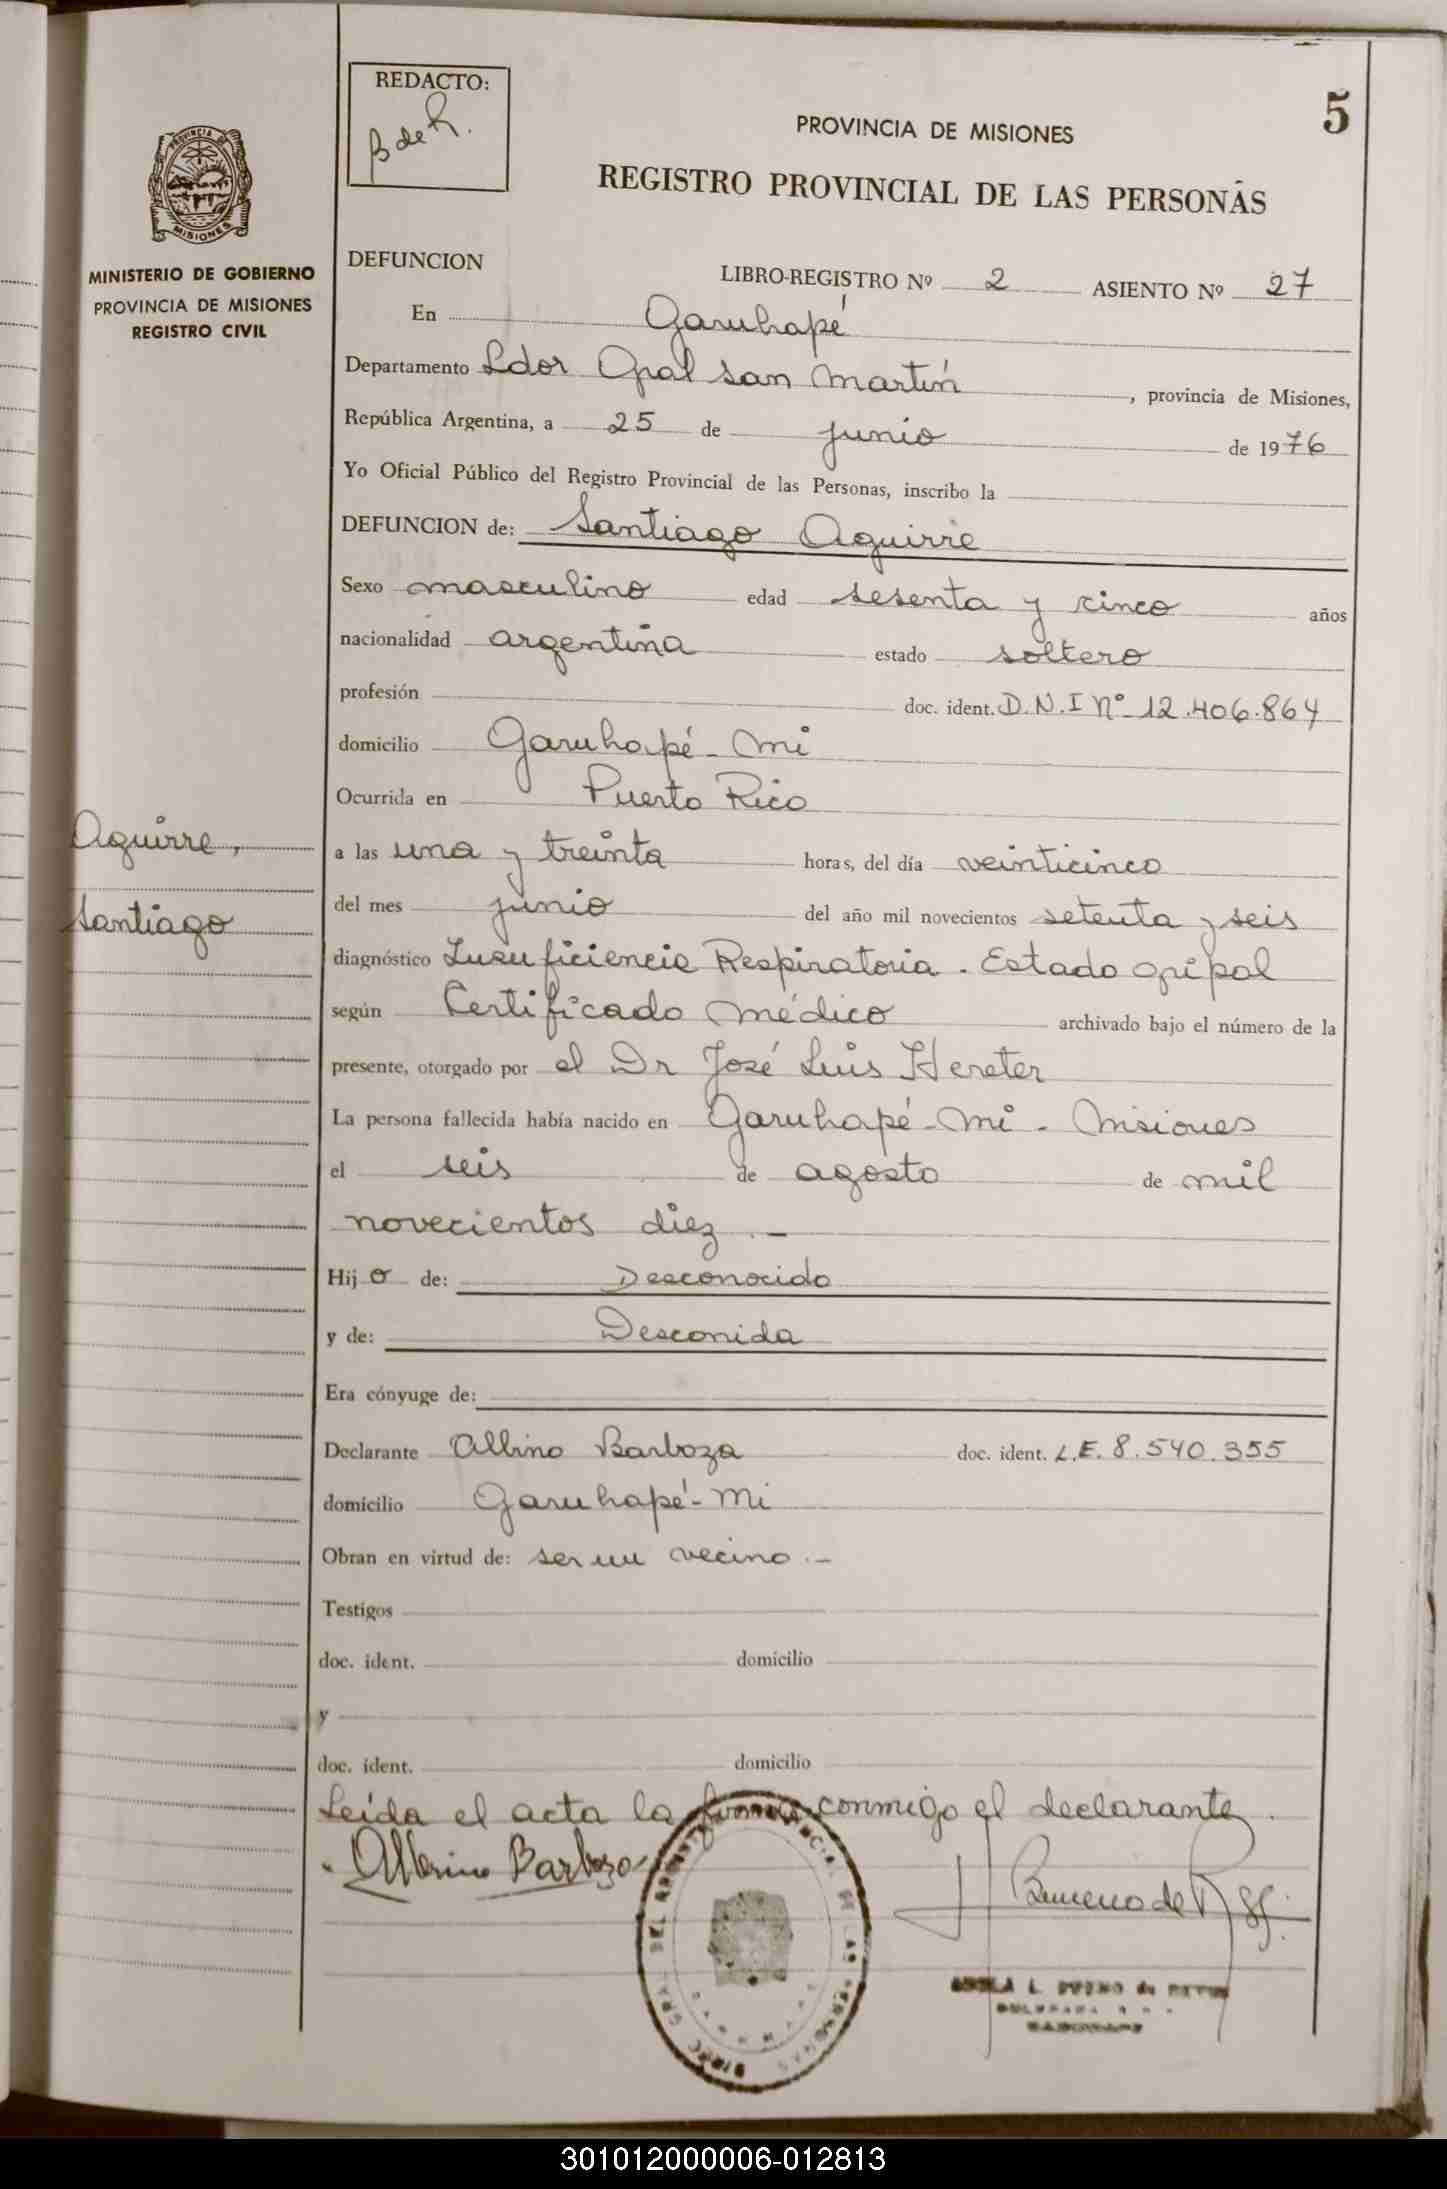 REDACTO:
B de R.
5
PROVINCIA DE MISIONES
REGISTRO PROVINCIAL DE LAS PERSONAS
PROVINCIA DE
MISIONES
MINISTERIO DE GOBIERNO
PROVINCIA DE MISIONES
REGISTRO CIVIL
DEFUNCION
LIBRO-REGISTRO Nº 2 ASIENTO Nº 27
En Garuhapé
Departamento Ldor Gral San Martín, provincia de Misiones,
República Argentina, a 25 de junio de 1976
Yo Oficial Público del Registro Provincial de las Personas, inscribo la
DEFUNCION de: Santiago Aguirre
Sexo masculino edad sesenta y cinco años
nacionalidad argentina estado soltero
profesión doc. ident. D.N.I Nº 12.406.864
domicilio Garuhapé-Mi
Ocurrida en Puerto Rico
Aguirre,
Santiago
a las una y treinta horas, del día veinticinco
del mes junio del año mil novecientos setenta y seis
diagnóstico Insuficiencia Respiratoria. Estado gripal
según Certificado médico archivado bajo el número de la
presente, otorgado por el Dr José Luis Hereter
La persona fallecida había nacido en Garuhapé-Mi - Misiones
el seis de agosto de mil
novecientos diez.-
Hijo de: Desconocido
y de: Desconida
Era cónyuge de:
Declarante Albino Barboza doc. ident. L.E. 8.540.355
domicilio Garuhapé-Mi
Obran en virtud de: ser un vecino.-
Testigos
doc. ident. domicilio
y
doc. ident. domicilio
Leída el acta la firma conmigo el declarante.
Barboza
301012000006-012813